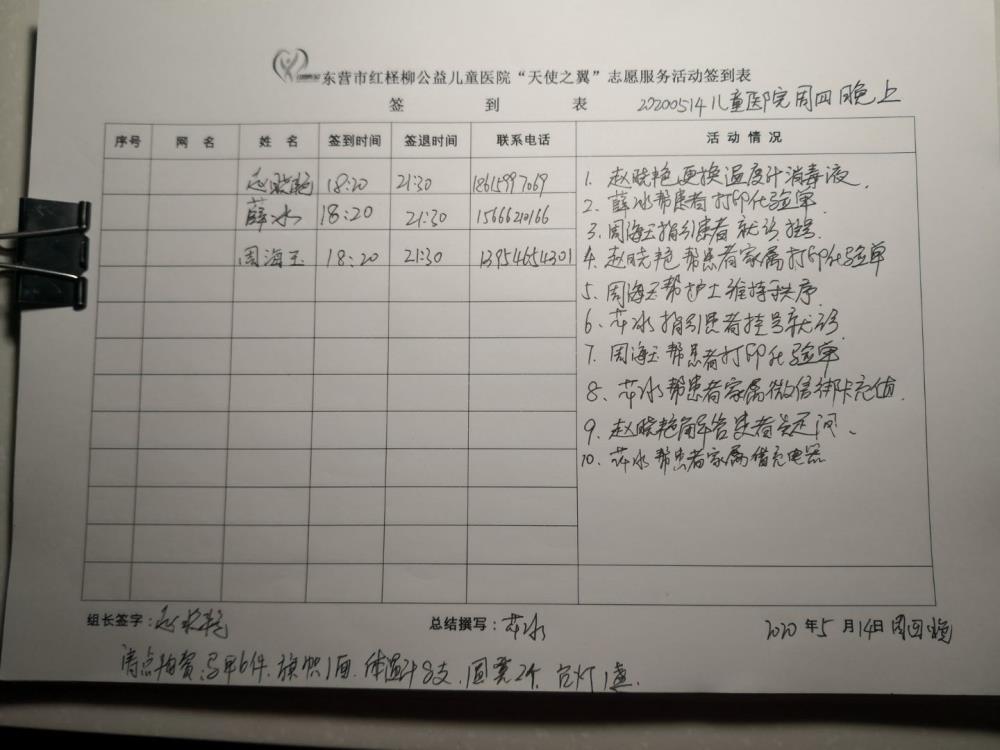 东营市红柽柳公益儿童医院“天使之翼”志愿服务活动签到表
签 到 表 20200514儿童医院周四晚上
序号 网 名 姓 名 签到时间 签退时间 联系电话 活 动 情 况
赵晓艳 18:20 21:30 18615997069
薛冰 18:20 21:30 15666210166
周海玉 18:20 21:30 13954654301
1. 赵晓艳更换温度计消毒液.
2. 薛冰帮患者打印化验单
3. 周海玉指引患者就诊挂号.
4. 赵晓艳帮患者家属打印化验单
5、周海玉帮护士维持秩序
6、薛冰指引患者挂号就诊
7、周海玉帮患者打印化验单
8、薛冰帮患者家属微信绑卡充值.
9、赵晓艳解答患者疑问、
10、薛冰帮患者家属借充电器
组长签字:赵晓艳 总结撰写:薛冰 2020年5月14日周四晚
清点物资:马甲6件.旗帜1面.体温计8支. 2个.台灯1盏.